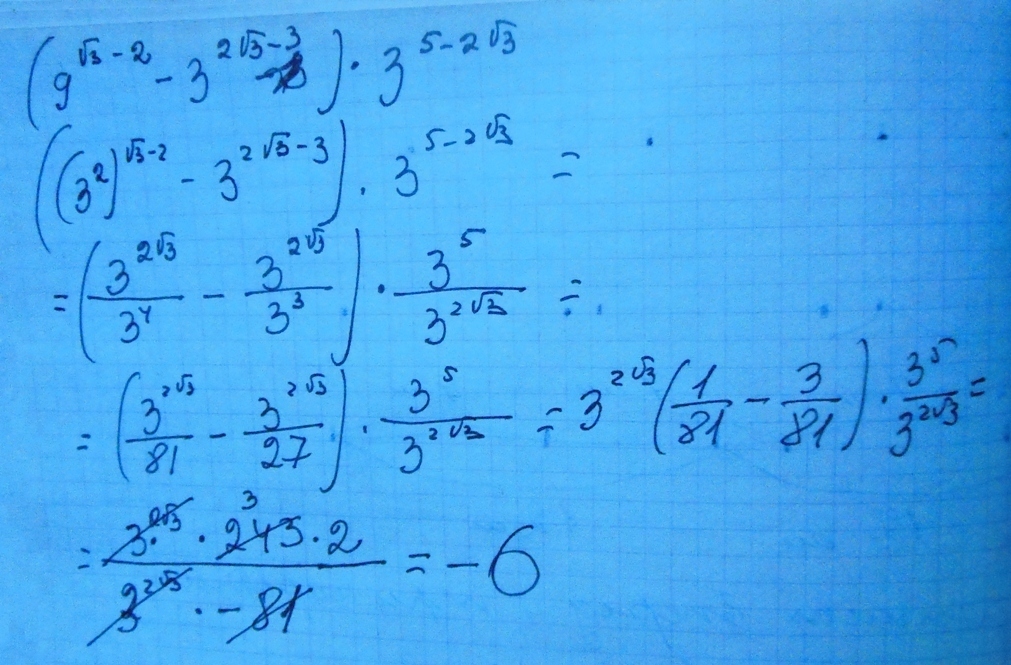 (9^{√3-2} - 3^{2√3-3}) · 3^{5-2√3}
((3^2)^{√3-2} - 3^{2√3-3}) · 3^{5-2√3} =
= (3^{2√3}/3^4 - 3^{2√3}/3^3) · 3^5/3^{2√3} =
= (3^{2√3}/81 - 3^{2√3}/27) · 3^5/3^{2√3} = 3^{2√3} (1/81 - 3/81) · 3^5/3^{2√3} =
= 3^{2√3} · 243 3 · 2 / 3^{2√3} · -81 = -6